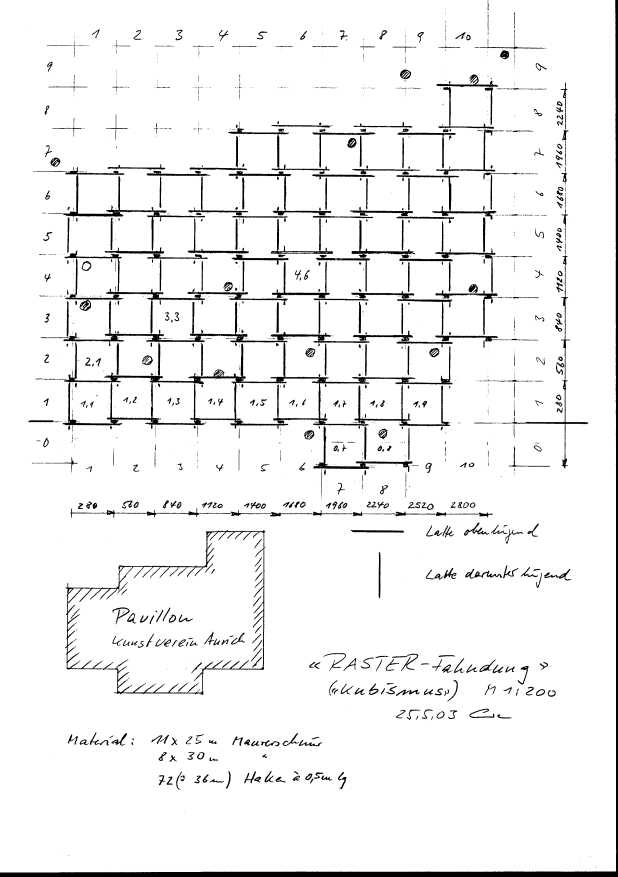 1 2 3 4 5 6 7 8 9 10
9 9
8 8 2240
7 7 1960
6 6 1680
5 5 1400
4 4,6 4 1120
3 3,3 3 840
2 2,1 2 560
1 1,1 1,2 1,3 1,4 1,5 1,6 1,7 1,8 1,9 1 280
0 0,7 0,8 0
1 2 3 4 5 6 9 10
7 8
280 560 840 1120 1400 1680 1960 2240 2520 2800
Latte obenliegend
Latte darunterliegend
Pavillon
Kunstverein Aurich
«RASTER-Fahndung»
(«Kubismus») M 1:200
25.5.03
Material: 11 x 25 m Maurerschnur
8 x 30 m "
72 (= 36 m) Haken à 0,5m lg